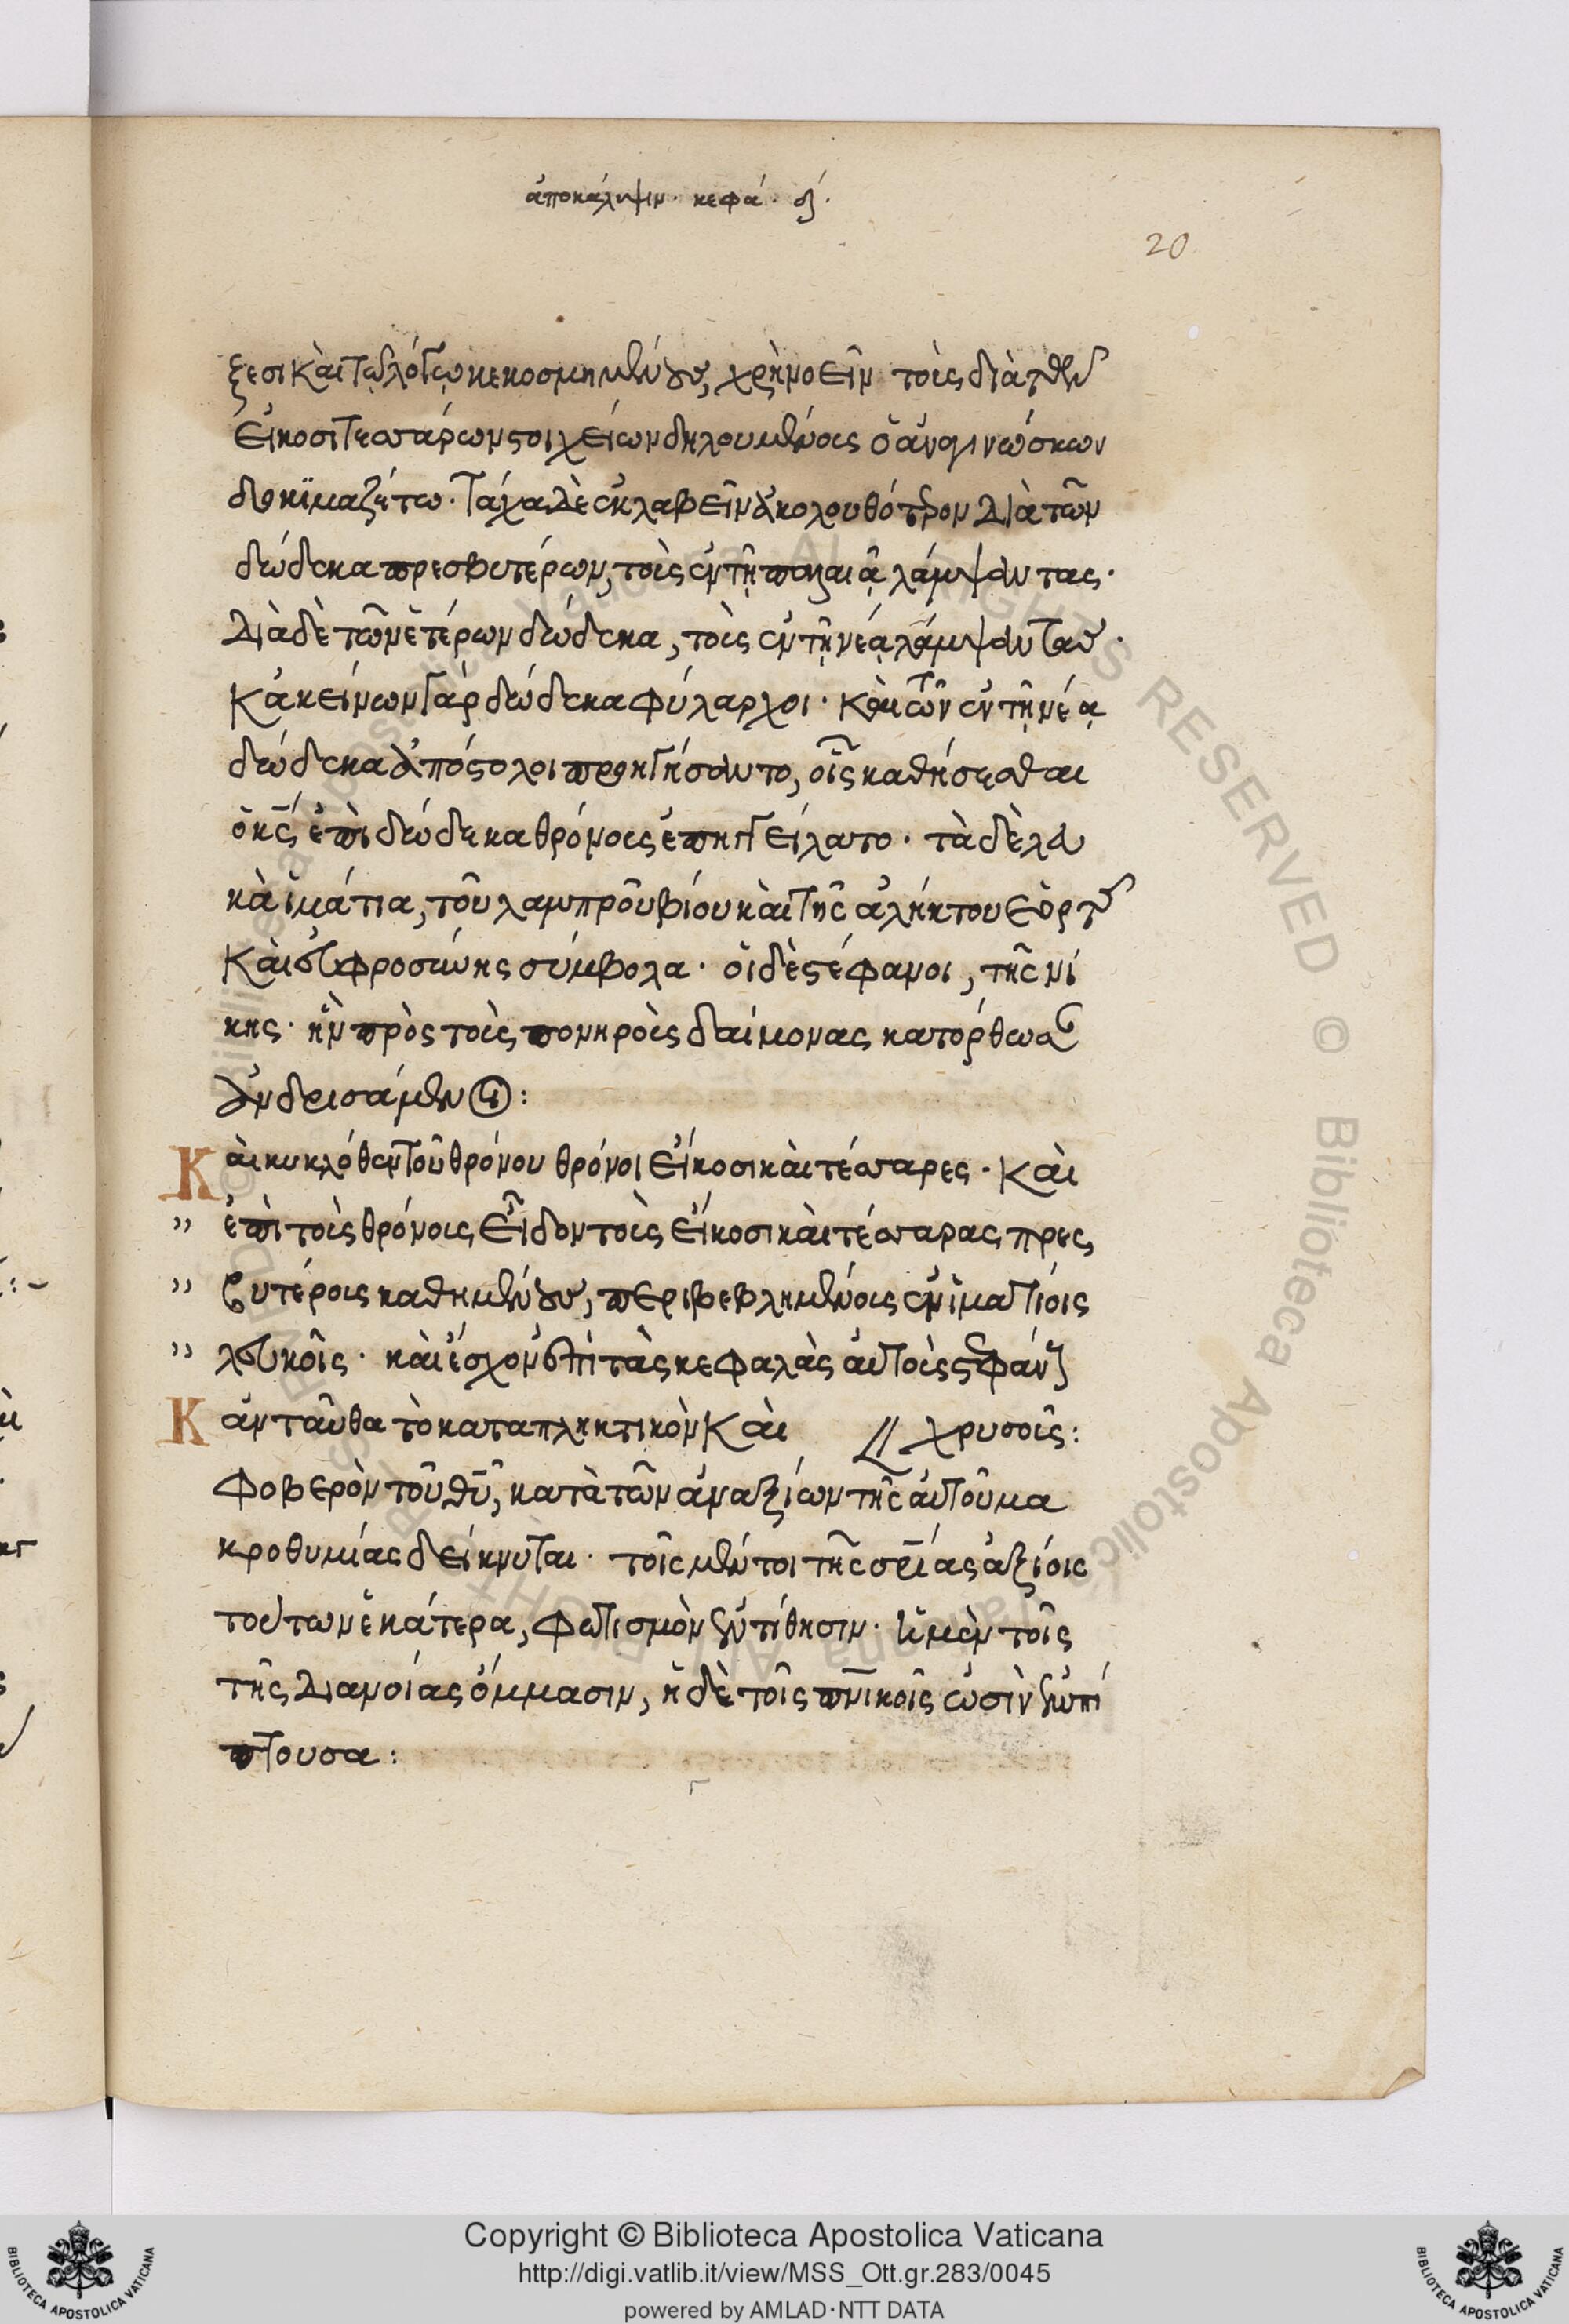 ἀποκάλυψιν· κεφά· δ·
20
ξεσι καὶ τῷ λόγῳ κεκοσμημένους, χρὴ νοεῖν τοὺς διὰ τῶν
εἰκοσιτεσσάρων στοιχείων δηλουμένους ὁ ἀναγινώσκων
δοκιμαζέτω· τάχα δὲ ἐκλαβεῖν ἀκολουθότερον διὰ τῶν
δώδεκα πρεσβυτέρων, τοὺς ἐν τῇ παλαιᾷ λάμψαντας·
διὰ δὲ τῶν ἑτέρων δώδεκα, τοὺς ἐν τῇ νέᾳ λάμψαντας·
κἀκείνων γὰρ δώδεκα φύλαρχοι· καὶ τῶν ἐν τῇ νέᾳ
δώδεκα ἀπόστολοι προηγήσαντο, οἷς καθήσεσθαι
ὁ κς ἐπὶ δώδεκα θρόνους ἐπηγγείλατο· τὰ δὲ λευ
κὰ ἱμάτια, τοῦ λαμπροῦ βίου καὶ τῆς ἀλήκτου ἑορτῆς
καὶ εὐφροσύνης σύμβολα· οἱ δὲ στέφανοι, τῆς νί
κης· ἣν πρὸς τοὺς πονηροὺς δαίμονας κατόρθωσαν
ἀνδρισάμενοι:
Καὶ κυκλόθεν τοῦ θρόνου θρόνοι εἴκοσι καὶ τέσσαρες· καὶ
" ἐπὶ τοὺς θρόνους εἶδον τοὺς εἴκοσι καὶ τέσσαρας πρεσ
" βυτέρους καθημένους, περιβεβλημένους ἐν ἱματίοις
" λευκοῖς· καὶ ἔσχον ἐπὶ τὰς κεφαλὰς αὐτοὺς στεφάνους
Κἀνταῦθα τὸ καταπληκτικὸν καὶ // χρυσοῦς:
φοβερὸν τοῦ θυ, κατὰ τῶν ἀναξίων τῆς αὐτοῦ μα
κροθυμίας δείκνυται· τοῖς μέντοι τῆς σρίας ἀξίοις
τούτων ἑκάτερα, φωτισμὸν ἐντίθησιν· ἡ μὲν τοῖς
τῆς διανοίας ὄμμασιν, ἡ δὲ τοῖς πνικοῖς ὠσὶν ἐμπί
πτουσα:
Copyright © Biblioteca Apostolica Vaticana
http://digi.vatlib.it/view/MSS_Ott.gr.283/0045
powered by AMLAD·NTT DATA